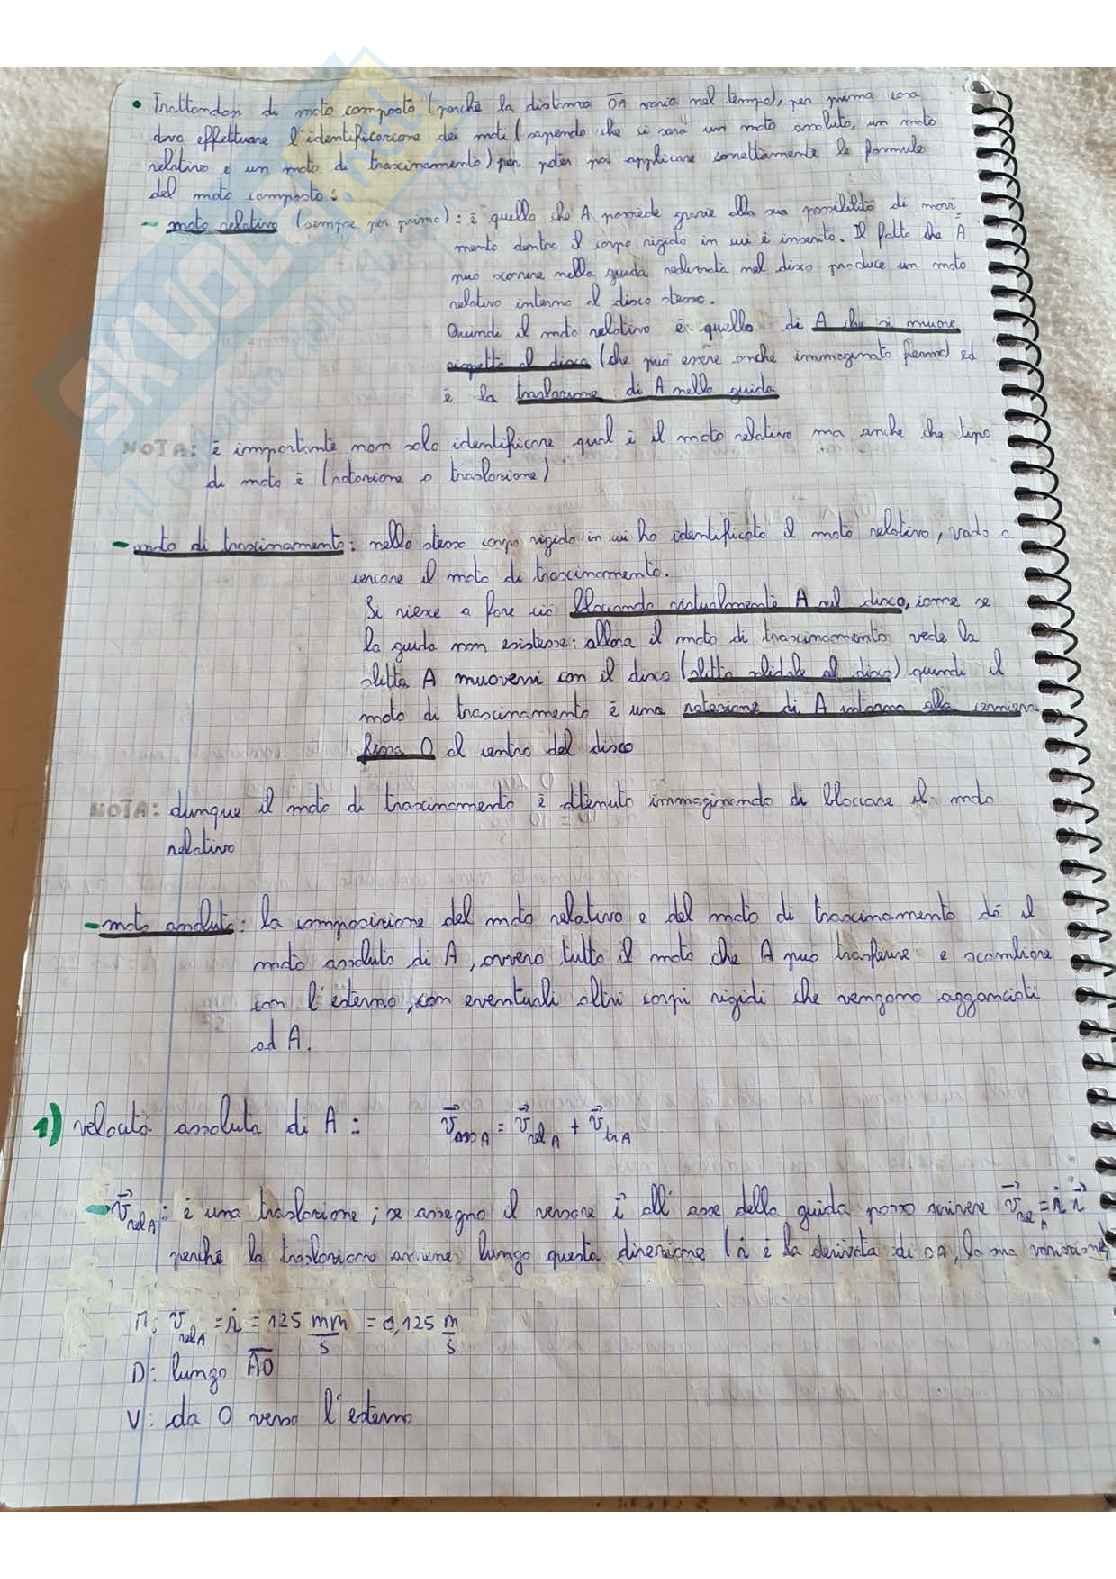 • Trattandosi di moto composto (perché la distanza OA varia nel tempo), per prima cosa
devo effettuare l'identificazione dei moti (sapendo che ci sarà un moto assoluto, un moto
relativo e un moto di trascinamento) per poter poi applicare correttamente le formule
del moto composto:
- moto relativo (sempre per primo): è quello che A possiede grazie alla sua possibilità di movi-
mento dentro il corpo rigido in cui è inserito. Il fatto che A
può scorrere nella guida ricavata nel disco produce un moto
relativo interno al disco stesso.
Quindi il moto relativo è quello di A che si muove
rispetto al disco (che può essere anche immaginato fermo) ed
è la traslazione di A nella guida
NOTA: è importante non solo identificare qual è il moto relativo ma anche che tipo
di moto è (rotazione o traslazione)
- moto di trascinamento: nello stesso corpo rigido in cui ho identificato il moto relativo, vado a
cercare il moto di trascinamento.
Si riesce a fare ciò bloccando virtualmente A sul disco, come se
la guida non esistesse: allora il moto di trascinamento vede la
slitta A muoversi con il disco (slitta solidale al disco) quindi il
moto di trascinamento è una rotazione di A intorno alla cerniera
fissa O al centro del disco
NOTA: dunque il moto di trascinamento è ottenuto immaginando di bloccare il moto
relativo
- moto assoluto: la composizione del moto relativo e del moto di trascinamento dà il
moto assoluto di A, ovvero tutto il moto che A può trasferire e scambiare
con l'esterno, con eventuali altri corpi rigidi che vengono agganciati
ad A.
1) velocità assoluta di A: v⃗ass A = v⃗rel A + v⃗tr A
→ v⃗rel A: è una traslazione; se assegno il versore i⃗ all'asse della guida posso scrivere v⃗rel A = ṙ i⃗
perché la traslazione avviene lungo questa direzione (ṙ è la derivata di OA, la sua variazione)
M: v rel A = ṙ = 125 mm/s = 0,125 m/s
D: lungo AO
V: da O verso l'esterno